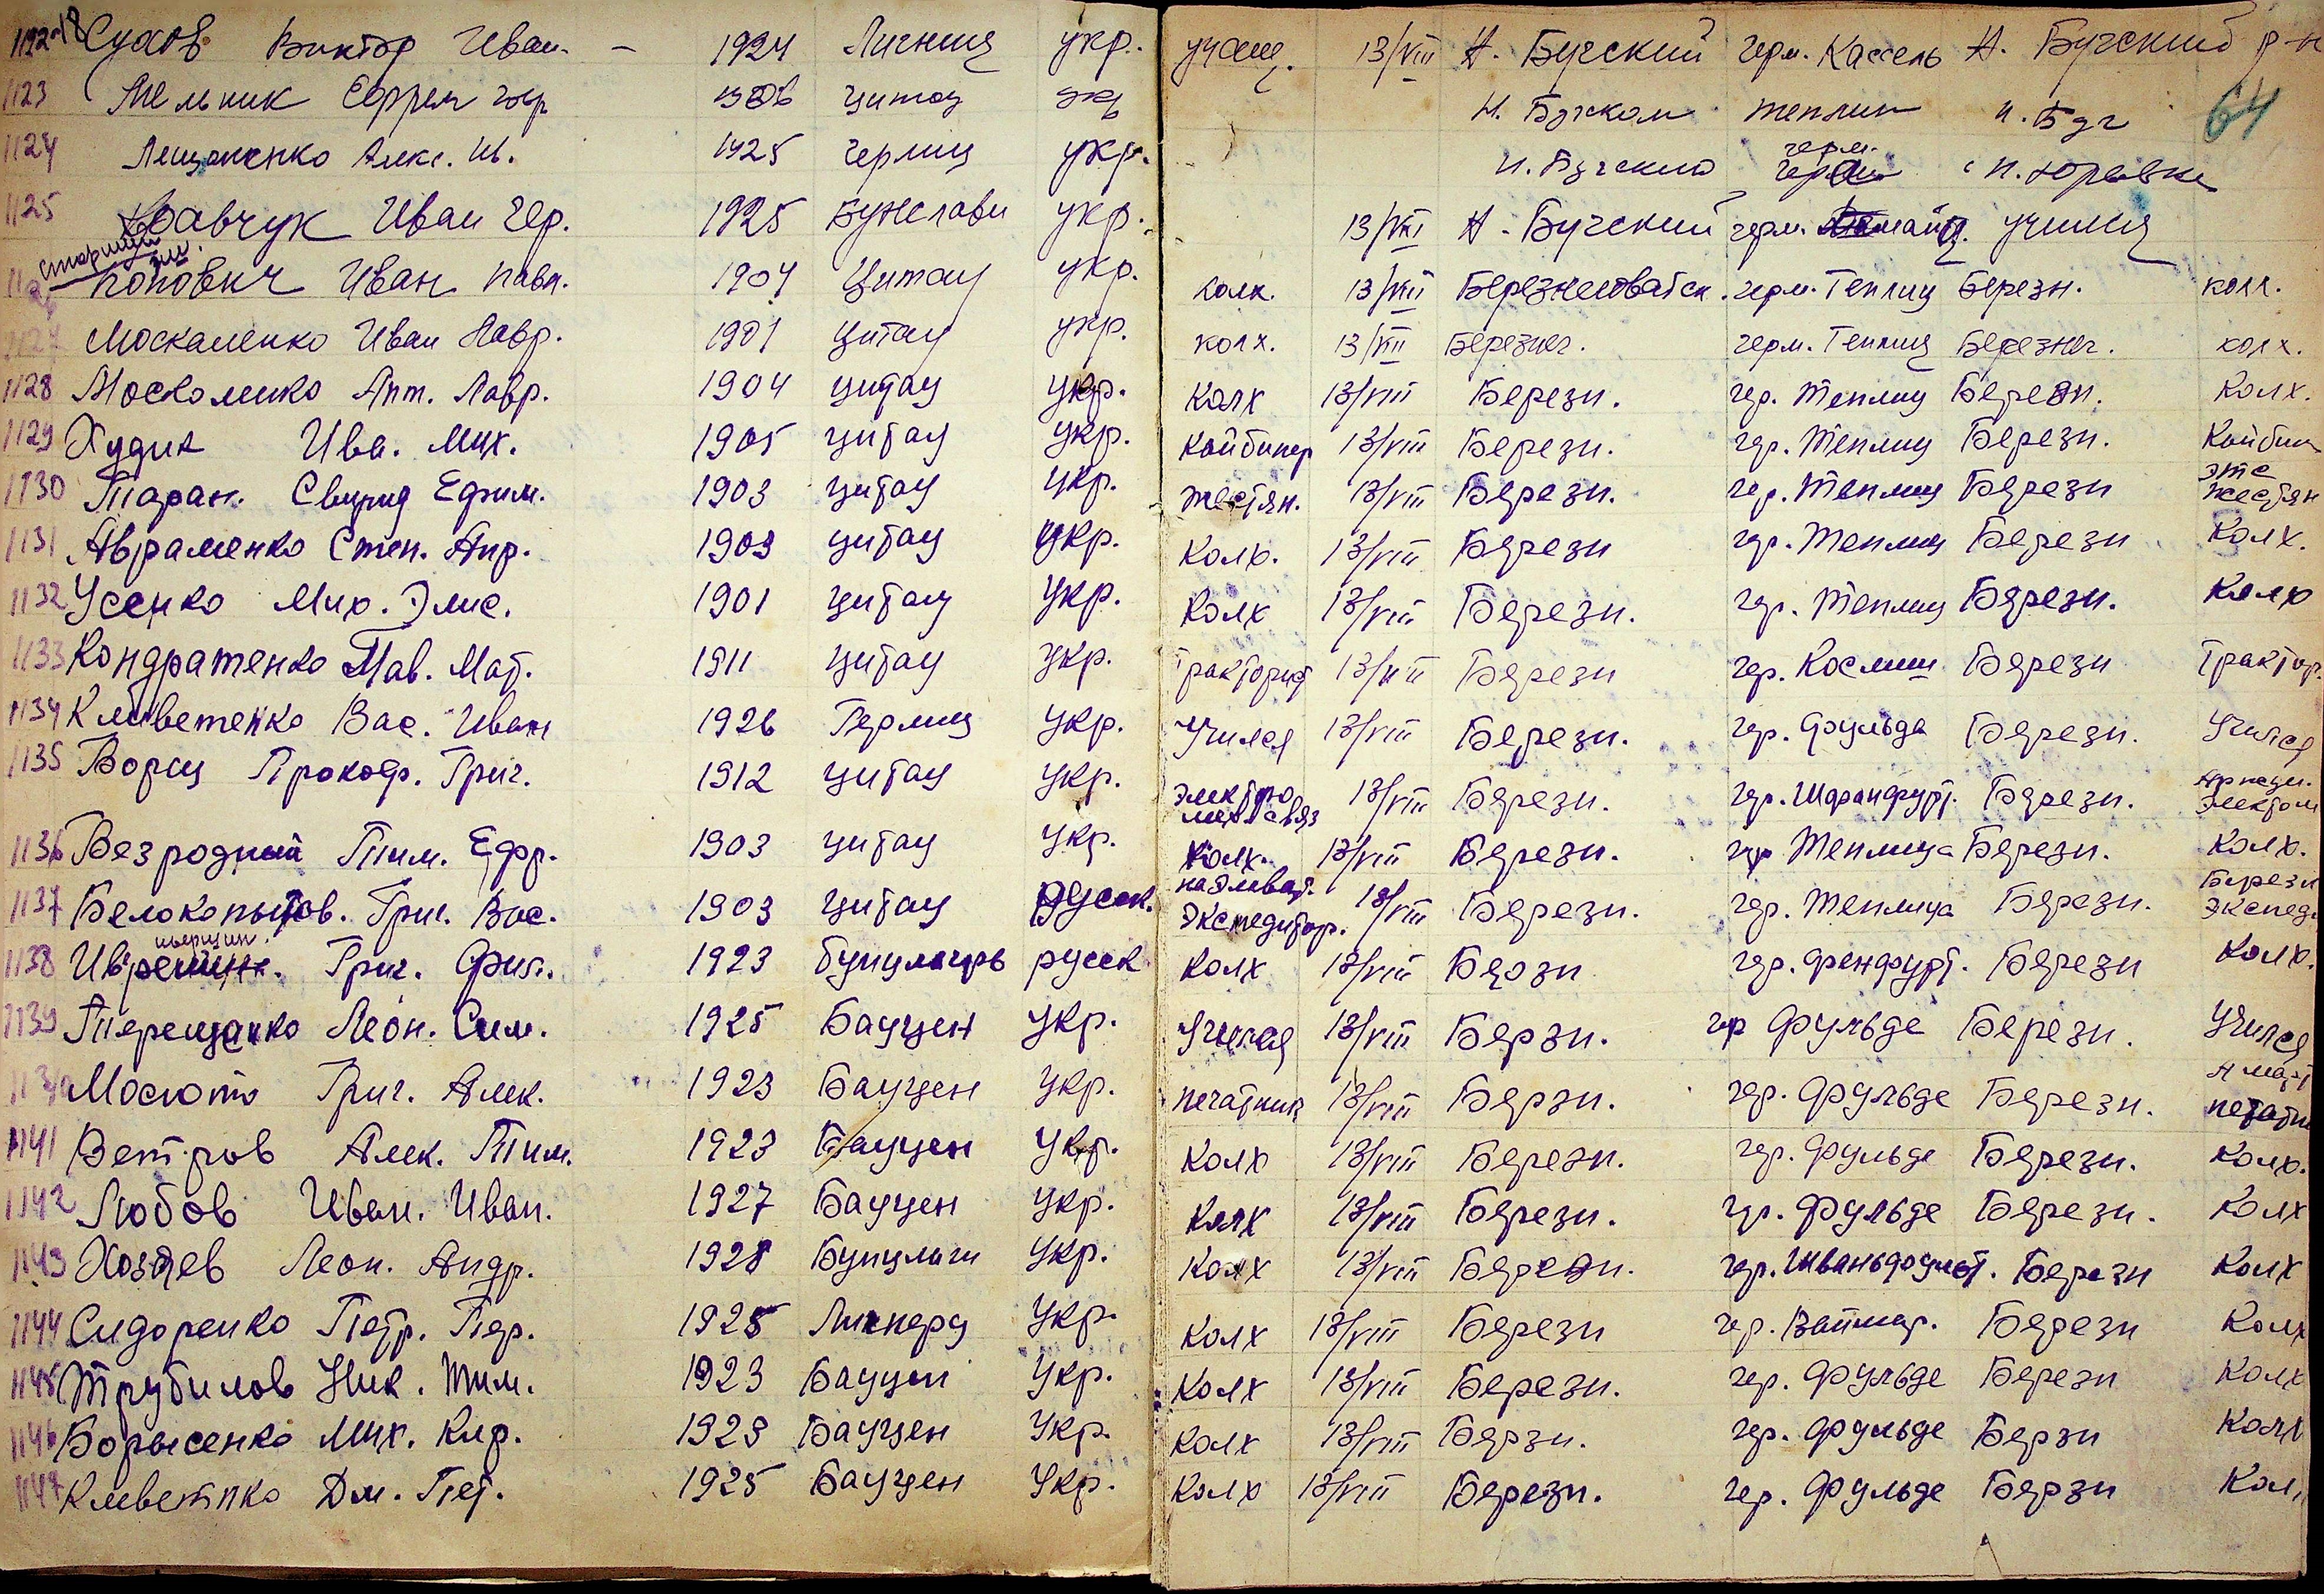 1122 18 Сухов Виктор Иван. - 1924 Лигниц укр. учащ. 13/VIII Н. Бугский герм. Кассель Н. Бугский р-н
1123 Мельник Ефрем цитау Н. Бугском теплиц Н. Буг 64
1124 Лещененко Алекс. Ив. 1925 герлиц укр. Н. Бугский герм. н. Юревка
1125 Кравчук Иван Гер. 1925 Бунслави укр. 13/VIII Н. Бугский герм. училищ
старший
Попович Иван Павл. 1904 Цитау укр. колх. 13/VIII Березнеговатск. герм. Теплиц Березн. колх.
1127 Москаленко Иван Лавр. 1901 Цитау укр. колх. 13/VIII Березнег. герм. Теплиц Березнег. колх.
1128 Москоленко Ант. Лавр. 1904 цитау укр. Колх 13/VIII Березн. гер. Теплиц Березн. Колх.
1129 Худик Ива. Мих. 1905 цитау укр. Комбинер 13/VIII Березн. гер. Теплиц Березн. Комбин
1130 Таран. Свирид Ефим. 1903 цитау укр. жестян. 13/VIII Березн. гер. Теплиц Березн жестян
1131 Авраменко Степ. Анр. 1903 цитау укр. Колх. 13/VIII Березн гер. Теплиц Березн Колх.
1132 Усенко Мих. Элис. 1901 цитау укр. Колх 13/VIII Березн. гер. Теплиц Березн. Колх
1133 Кондратенко Пав. Мат. 1911 цитау укр. Тракторист 13/VIII Березн гер. Березн Трактор.
1134 Клыветенко Вас. Иван 1926 Герлиц укр. Учился 13/VIII Березн. гер. Фульда Березн. Учился
1135 Ворац Прокоф. Григ. 1912 цитау укр. электро мех связ 13/VIII Березн. гер. Шфранфурт. Березн. электром
1136 Безродный Тим. Ефр. 1903 цитау укр. Колх. 13/VIII Березн. гер Теплица Березн. Колх.
1137 Белокопытов. Григ. Вас. 1903 цитау русск. Экспедитор. 13/VIII Березн. гер. Теплица Березн. Березн Экспед.
1138 Григ. Фил. 1923 русск Колх 13/VIII Березн гер. Фенфурт. Березн Колх.
1139 Терещанко Леон. Сим. 1925 Бауцен укр. Учился 13/VIII Берзн. гер Фульде Березн. Учился
Мосюто Григ. Алек. 1923 Бауцен укр. печатник 13/VIII Берзн. гер. Фульде Березн. печатн
1141 Ветров Алек. Тим. 1923 Бауцен укр. Колх 13/VIII Березн. гер. Фульде Березн. Колх.
1142 Любов Иван. Иван. 1927 Бауцен укр. Колх 13/VIII Березн. гер. Фульде Березн. Колх
1143 Хозяев Леон. Андр. 1928 Бунцлаги укр. Колх 13/VIII Березн. гер. Березн Колх
1144 Сидоренко Петр. Пер. 1925 укр. Колх 13/VIII Березн гер. Ваймар. Березн Колх
1145 Трубилов Ник. Тим. 1923 Бауцен укр. Колх 13/VIII Березн. гер. Фульде Березн Колх
1146 Борысенко Мих. Кир. 1923 Бауцен укр. Колх 13/VIII Берзн. гер. Фульде Берзн Колх
1147 Клыветнко Дм. Пет. 1925 Бауцен укр. Колх 13/VIII Березн. гер. Фульде Берзн Кол